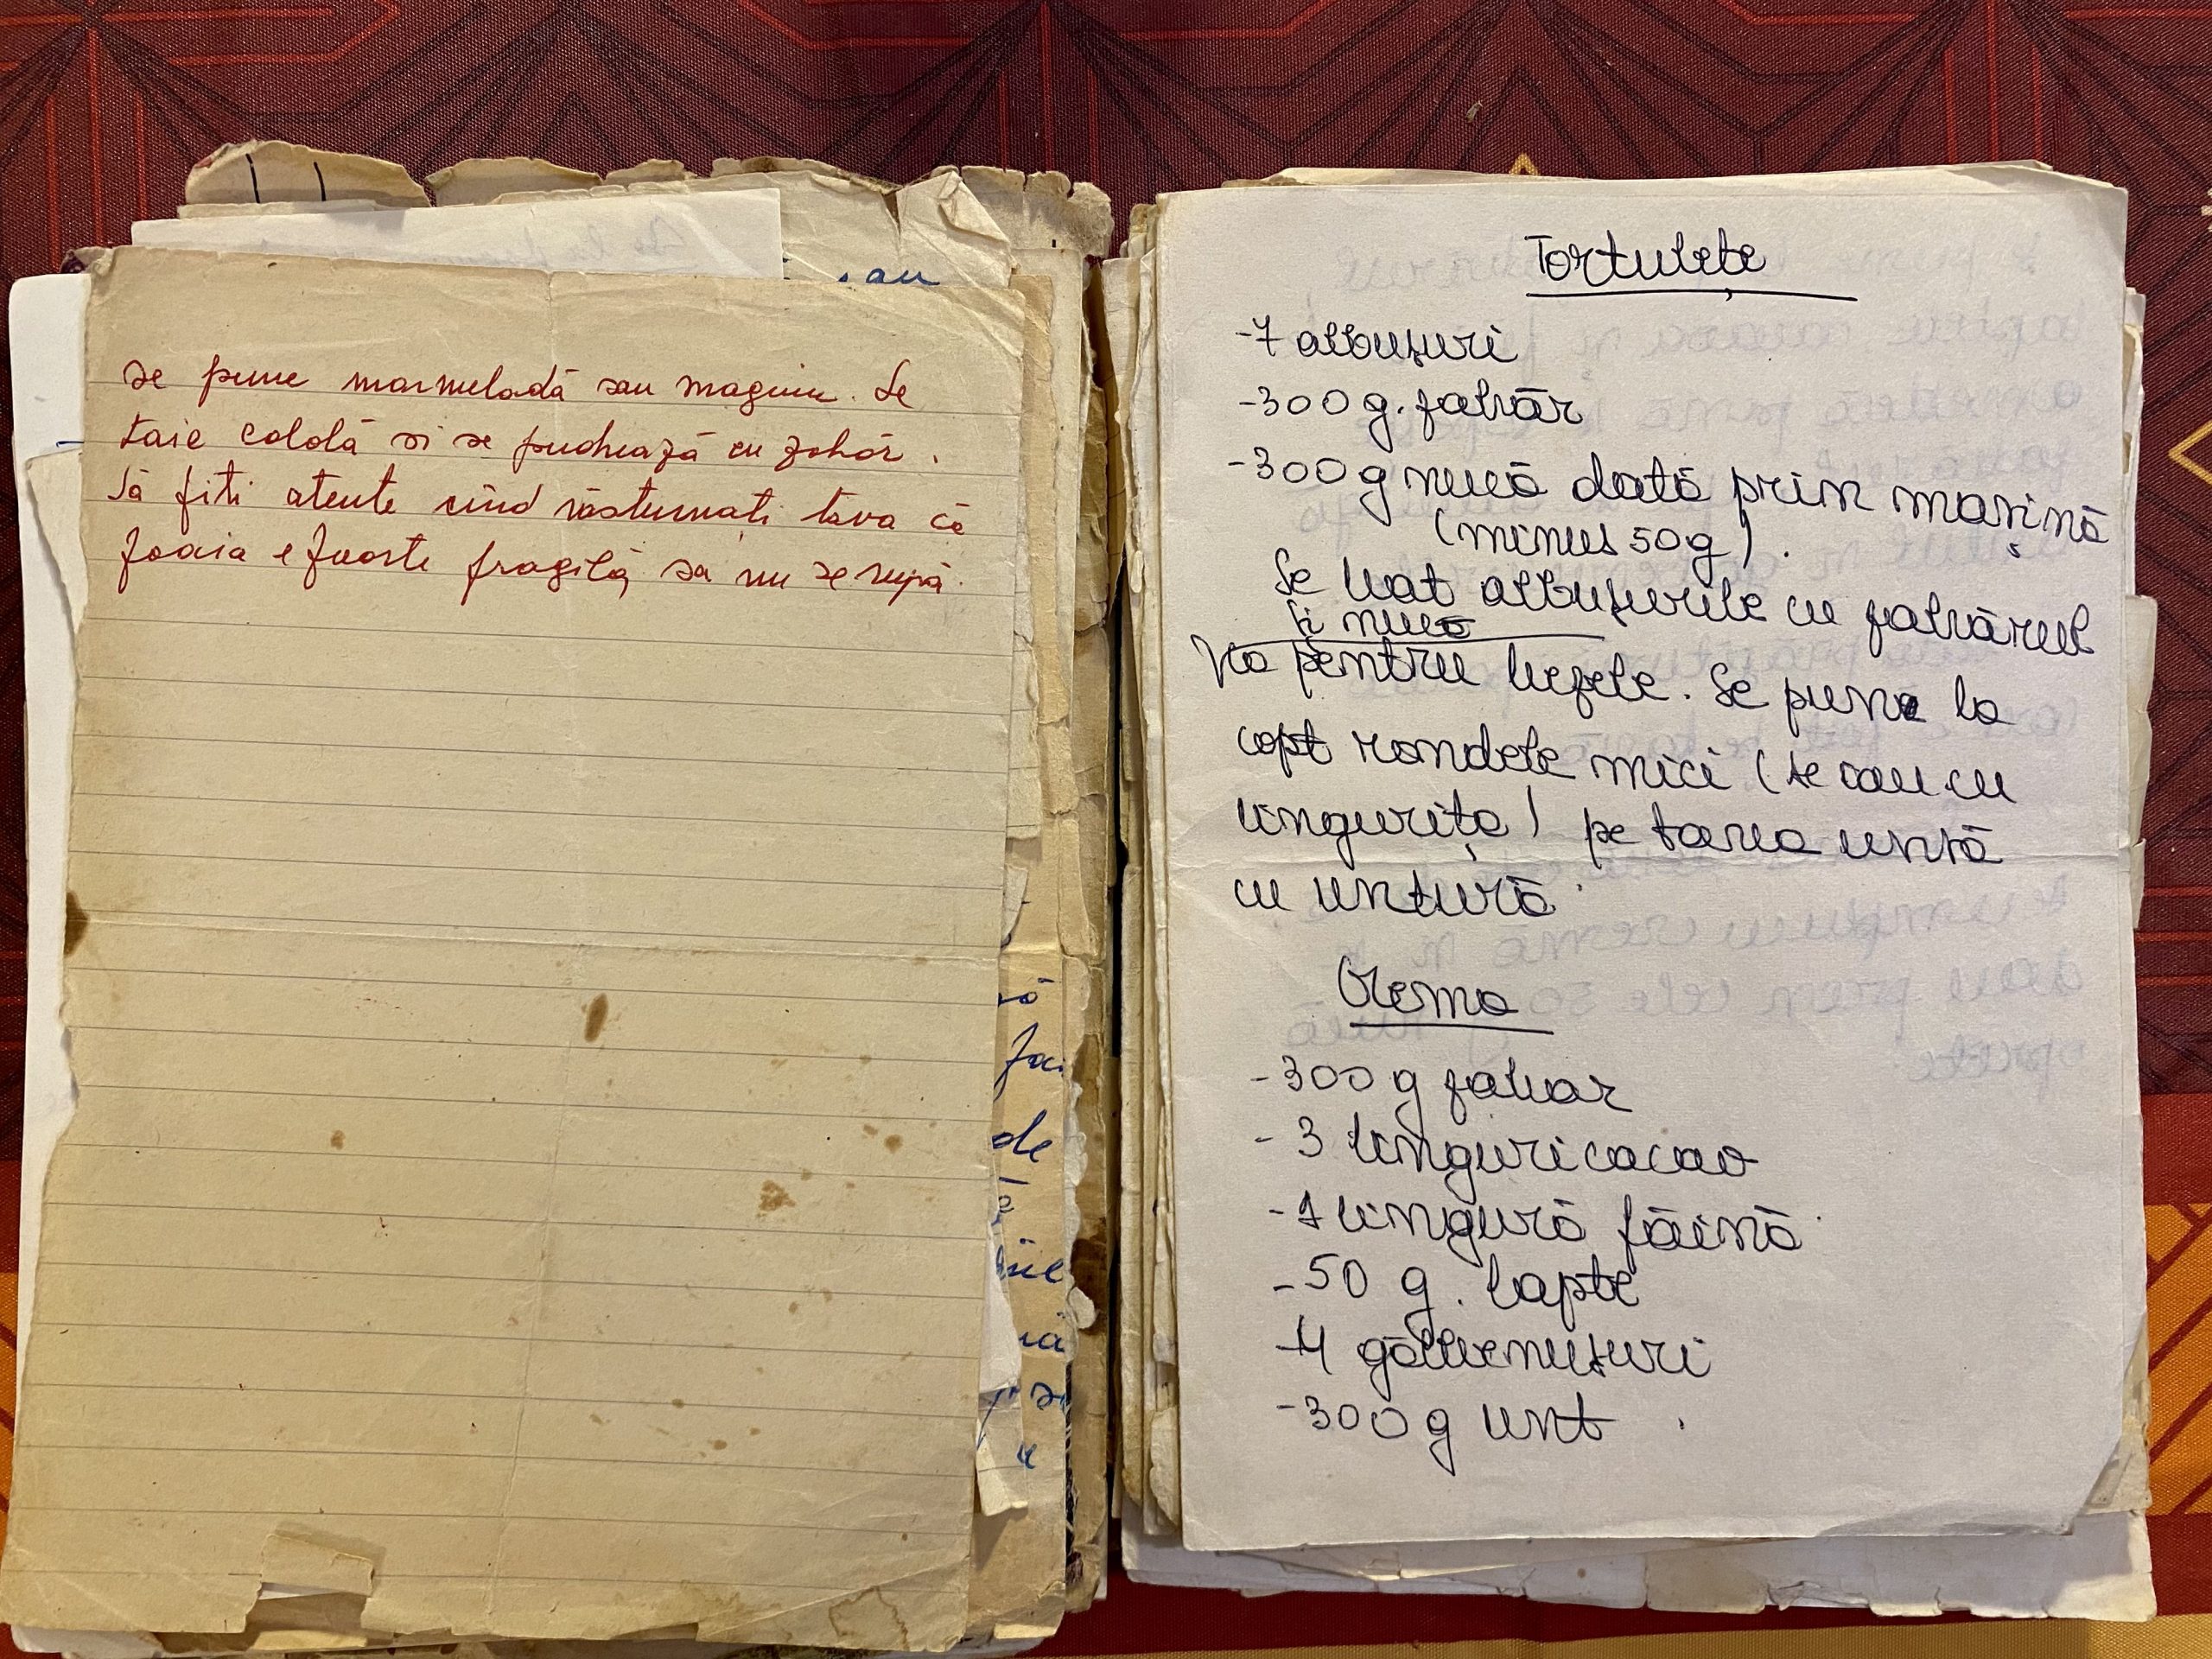 se pune marmeladă sau magiun. Se
taie caldă si se pudrează cu zahăr.
Să fiti atente cînd răsturnați tava că
foaia e foarte fragilă, sa nu se rupă.
sau
foa
de
Tortulețe
-7 albușuri
-300 g. zahăr
-300 g nucă dată prin mașină
(minus 50g).
Se bat albușurile cu zahărul
și nuca
ca pentru bezele. Se pune la
copt rondele mici (se iau cu
lingurița) pe tava unsă
cu untură.
Crema
-300 g zahar
- 3 linguri cacao
-1 lingură făină
-50 g. lapte
-4 gălbenușuri
-300 g unt.